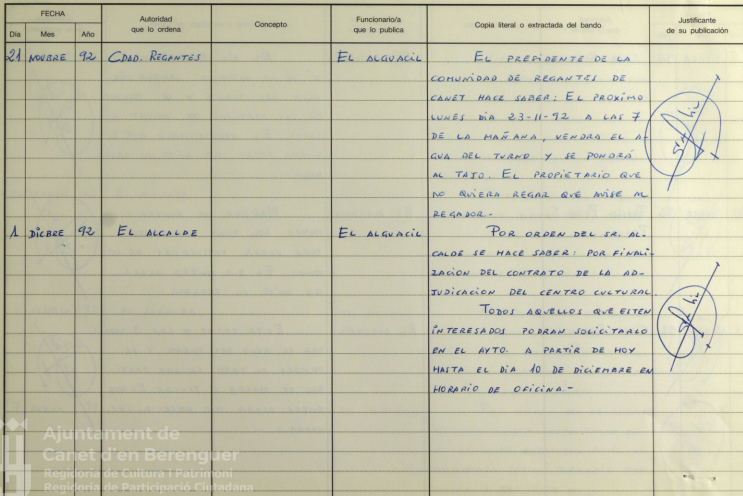 FECHA
Autoridad
que lo ordena
Concepto
Funcionario/a
que lo publica
Copia literal o extractada del bando
Justificante
de su publicación
Día Mes Año
21 NOVBRE 92 CDAD. REGANTES EL ALGUACIL EL PRESIDENTE DE LA
COMUNIDAD DE REGANTES DE
CANET HACE SABER: EL PROXIMO
LUNES DIA 23-11-92 A LAS 7
DE LA MAÑANA, VENDRA EL A-
GUA DEL TURNO Y SE PONDRÁ
AL TAJO. EL PROPIETARIO QUE
NO QUIERA REGAR QUE AVISE AL
REGADOR.-
1 DICBRE 92 EL ALCALDE EL ALGUACIL POR ORDEN DEL SR. AL-
CALDE SE HACE SABER: POR FINALI-
ZACION DEL CONTRATO DE LA AD-
JUDICACION DEL CENTRO CULTURAL.
TODOS AQUELLOS QUE ESTEN
INTERESADOS PODRAN SOLICITARLO
EN EL AYTO. A PARTIR DE HOY
HASTA EL DIA 10 DE DICIEMBRE EN
HORARIO DE OFICINA.-
Ajuntament de
Canet d'en Berenguer
Regidoria de Cultura i Patrimoni
Regidoria de Participació Ciutadana